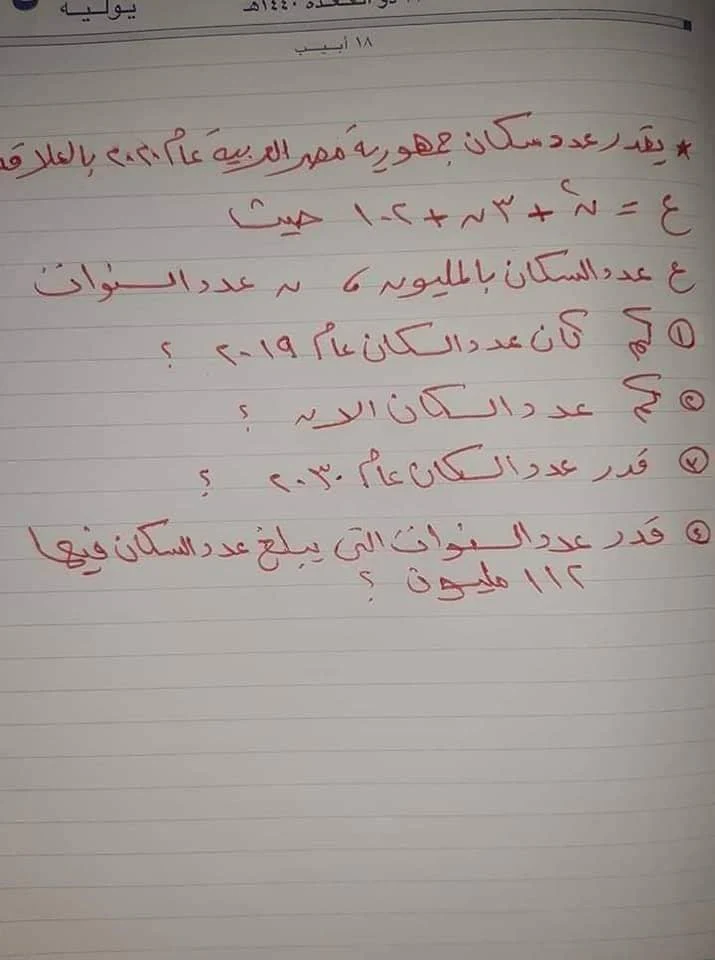 يوليه
ذو القعدة ١٤٤٠هـ
١٨ أبيب
* يقدر عدد سكان جمهورية مصر العربية عام ٢٠٢٠ بالعلاقة
ع = ن٢ + ٣ن + ١٠٢ حيث
ع عدد السكان بالمليون ، ن عدد السنوات
١ كم كان عدد السكان عام ٢٠١٩ ؟
٢ كم عدد السكان الان ؟
٣ قدر عدد السكان عام ٢٠٣٠ ؟
٤ قدر عدد السنوات التى يبلغ عدد السكان فيها
١١٢ مليون ؟